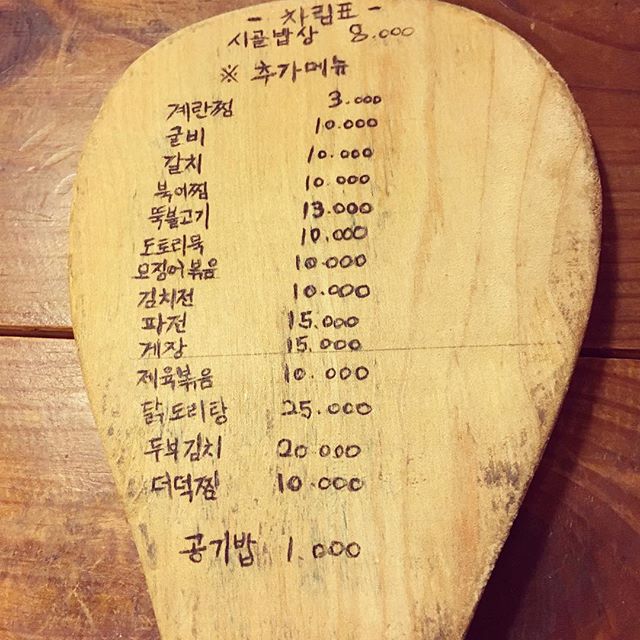 - 차림표 -
시골밥상 8.000
※ 추가메뉴
계란찜 3.000
굴비 10.000
갈치 10.000
북어찜 10.000
뚝불고기 13.000
도토리묵 10.000
오징어볶음 10.000
김치전 10.000
파전 15.000
게장 15.000
제육볶음 10.000
닭도리탕 25.000
두부김치 20.000
더덕찜 10.000
공기밥 1.000